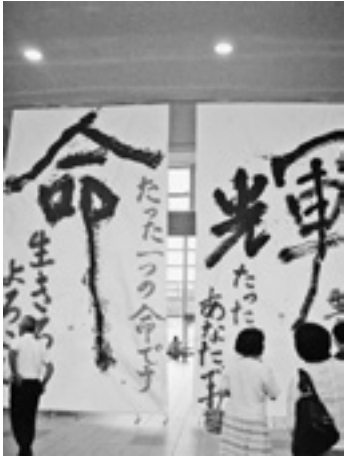 命
たった一つの命です
生きる
よろこ
輝
たった
あなたです